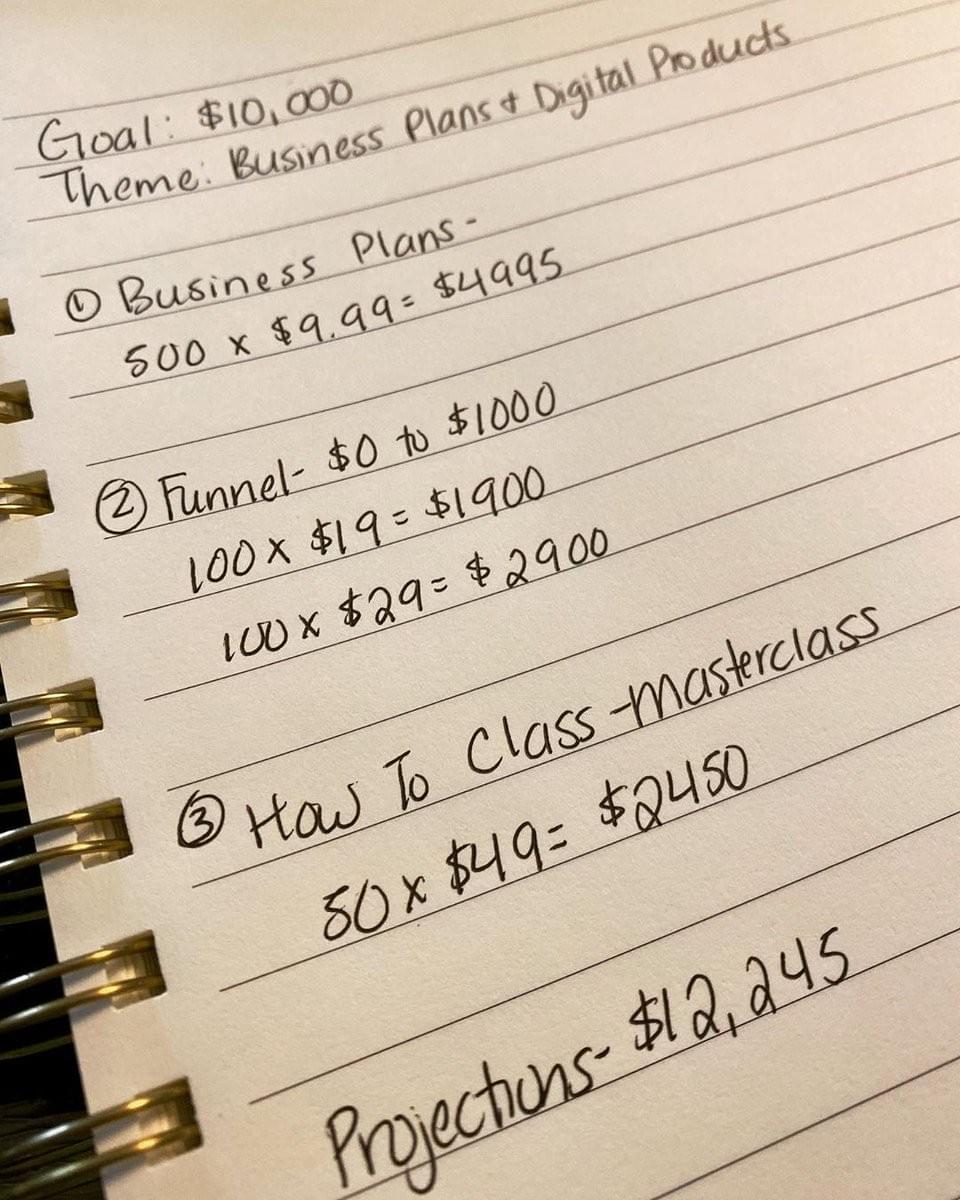 Goal: $10,000
Theme: Business Plans & Digital Products
① Business Plans-
500 x $9.99 = $4995
② Funnel- $0 to $1000
100 x $19 = $1900
100 x $29 = $2900
③ How To Class - Masterclass
50 x $49 = $2450
Projections- $12,245